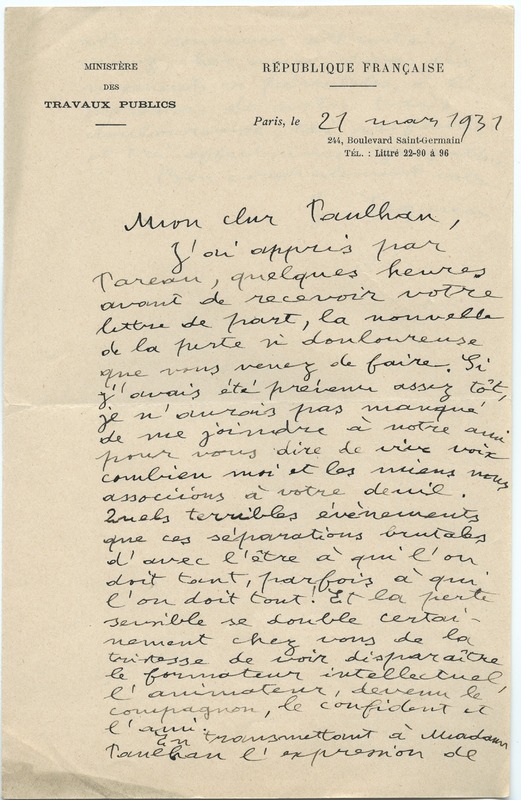 MINISTÈRE
DES
TRAVAUX PUBLICS
RÉPUBLIQUE FRANÇAISE
Paris, le 21 mars 1931
244, Boulevard Saint-Germain
TÉL. : Littré 22-90 à 96
Mon cher Paulhan,
J'ai appris par
quelques heures
avant de recevoir votre
lettre de part, la nouvelle
de la perte si douloureuse
que vous venez de faire. Si
j'avais été prévenu assez tôt,
je n'aurais pas manqué
de me joindre à notre ami
pour vous dire de vive voix
combien moi et les miens nous
associions à votre deuil.
Quels terribles évènements
que ces séparations brutales
d'avec l'être à qui l'on
doit tant, parfois à qui
l'on doit tout! Et la perte
sensible se double certai-
nement chez vous de la
tristesse de voir disparaître
le formateur intellectuel,
l'animateur, devenu le
compagnon, le confident et
l'ami.
En transmettant à Madame
Paulhan l'expression de